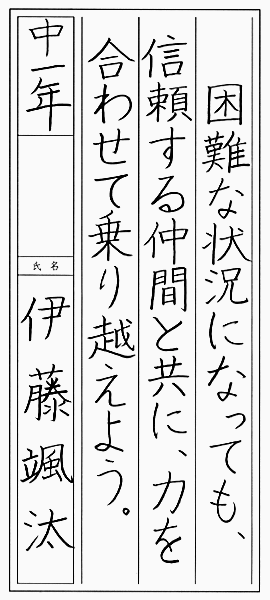 困難な状況になっても、
信頼する仲間と共に、力を
合わせて乗り越えよう。
中一年
氏名
伊藤颯汰